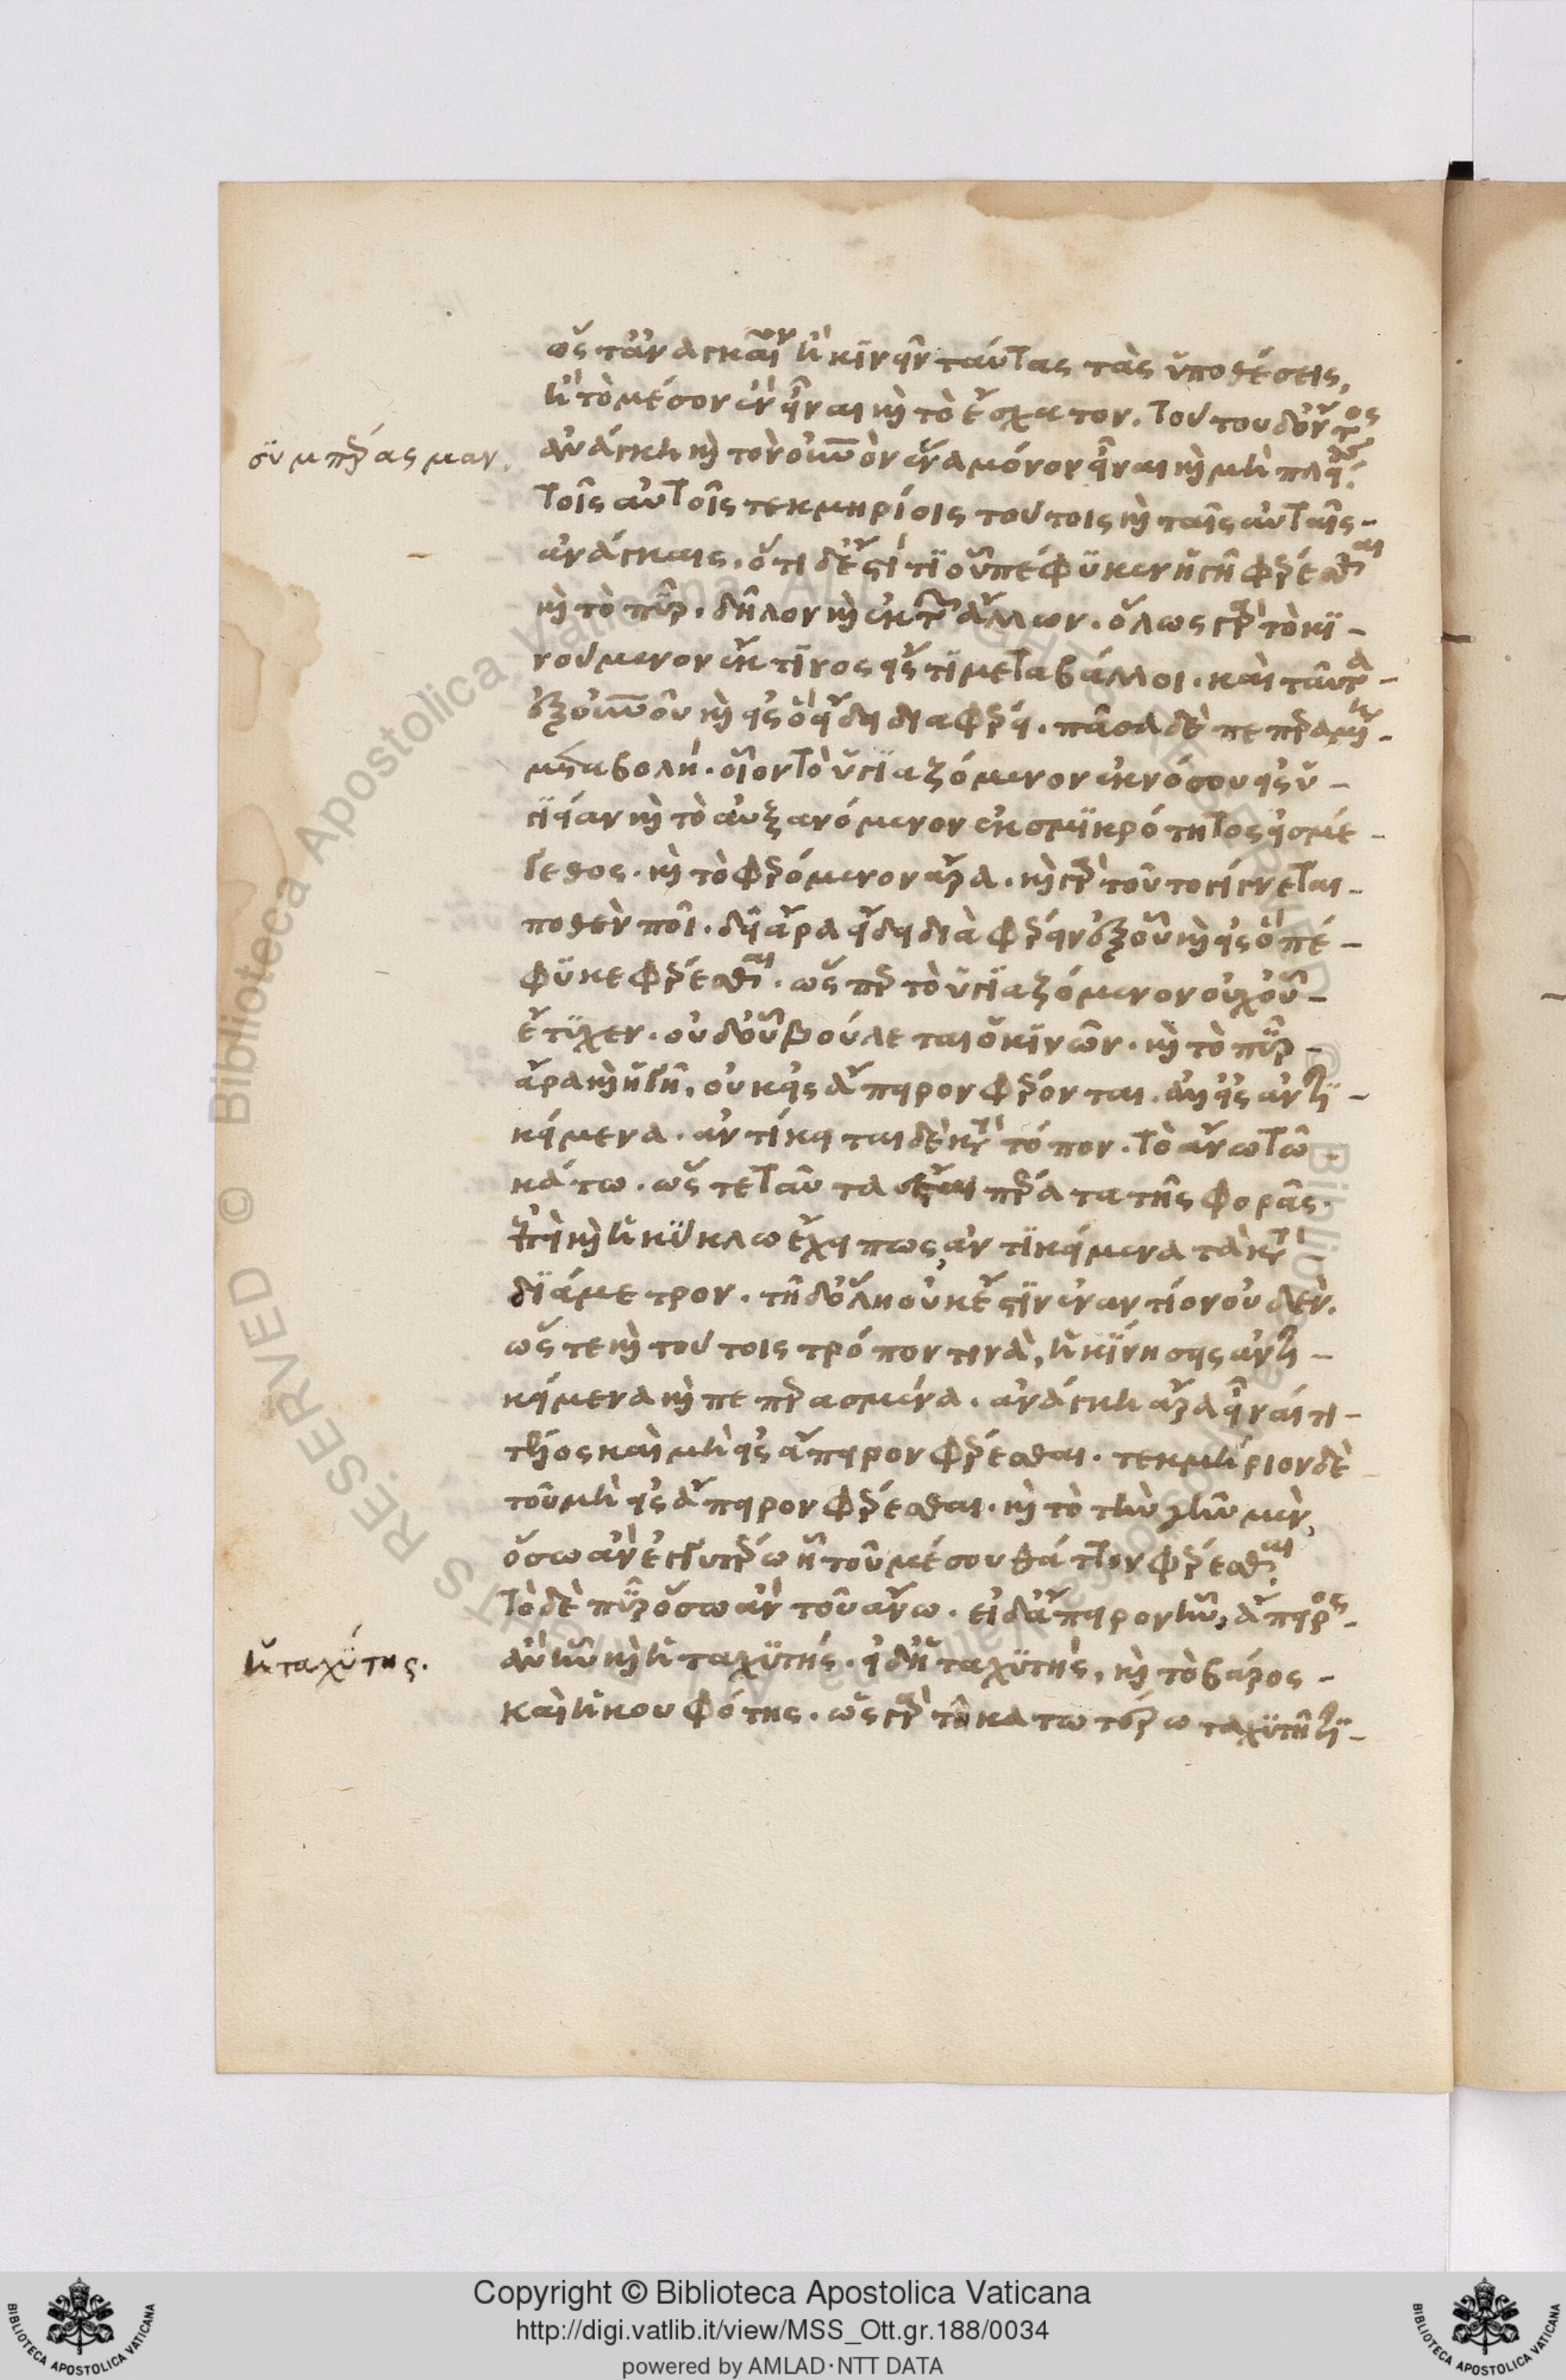 ὥστ' ἀνάγκαῖον ἢ κινεῖν ταύτας τὰς ὑποθέσεις,
ἢ τὸ μέσον ἓν εἶναι καὶ τὸ ἔσχατον. τούτου δ' ὄντος
ἀνάγκη καὶ τὸν οὐνὸν ἕνα μόνον εἶναι καὶ μὴ πλείους.
συμπέρασμαν.
τοῖς αὐτοῖς τεκμηρίοις τούτοις καὶ ταῖς αὐταῖς
ἀνάγκαις. ὅτι δ' ἔστί τι οὗ πέφυκεν ἡ γῆ φέρεσθαι
καὶ τὸ πῦρ. δῆλον καὶ ἐκ τῶν ἄλλων. ὅλως γὰρ τὸ κι-
νούμενον ἔκ τινος εἴς τι μεταβάλλοι. καὶ ταῦτα
ἐξ οὐνοῦ καὶ εἰς ὃ εἴδει διαφέρει. πᾶσα δὲ πεπερασμένη
μεταβολή. οἷον τὸ ὑγιαζόμενον ἐκ νόσου εἰς ὑ-
γίειαν καὶ τὸ αὐξανόμενον ἐκ σμικρότητος εἰς μέ-
γεθος. καὶ τὸ φερόμενον ἄρα. καὶ γὰρ τοῦτο γίγνεται
ποθὲν ποῖ. δεῖ ἄρα εἴδει διαφέρειν ἐξ οὗ καὶ εἰς ὃ πέ-
φυκε φέρεσθαι. ὥσπερ τὸ ὑγιαζόμενον οὐχ οὗ
ἔτυχεν. οὐδ' οὗ βούλεται ὁ κινῶν. καὶ τὸ πῦρ
ἄρα καὶ ἡ γῆ, οὐκ εἰς ἄπειρον φέρονται. ἀλλ' εἰς ἀντι-
κείμενα. ἀντίκειται δὲ κατὰ τόπον. τὸ ἄνω τῶ
κάτω. ὥστε ταῦτα ἔσται πέρατα τῆς φορᾶς.
ἐπεὶ καὶ ἡ κύκλω ἔχει πως, ἀντικείμενα τὰ κατὰ
διάμετρον. τῆ δ' ὅλη οὐκ ἔστιν ἐναντίον οὐδέν.
ὥστε καὶ τούτοις τρόπον τινὰ, ἡ κίνησις εἰς ἀντι-
κείμενα καὶ πεπερασμένα. ἀνάγκη ἄρα εἶναί τι
τέλος καὶ μὴ εἰς ἄπειρον φέρεσθαι. τεκμήριον δὲ
τοῦ μὴ εἰς ἄπειρον φέρεσθαι. καὶ τὸ τὴν γῆν μὲν,
ὅσω ἂν ἐγγυτέρω ᾖ τοῦ μέσου θάττον φέρεσθαι.
τὸ δὲ πῦρ ὅσω ἂν τοῦ ἄνω. εἰ δ' ἄπειρον ἦν, ἄπειρος
ἂν ἦν καὶ ἡ ταχυτής. εἰ δ' ἡ ταχυτής, καὶ τὸ βάρος
ἡ ταχύτης.
καὶ ἡ κουφότης. ὡς γὰρ τῆ κατωτέρω ταχυτῆτι
Copyright © Biblioteca Apostolica Vaticana
http://digi.vatlib.it/view/MSS_Ott.gr.188/0034
powered by AMLAD·NTT DATA
BIBLIOTECA APOSTOLICA VATICANA
BIBLIOTECA APOSTOLICA VATICANA